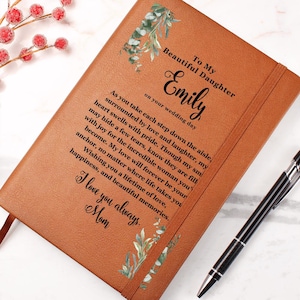 To My
Beautiful Daughter
Emily
on your wedding day
As you take each step down the aisle,
surrounded by love and laughter, my
heart swells with pride. Though my soul
may hide a few tears, know they are filled
with joy for the incredible woman you've
become. My love will forever be your
anchor, no matter where life takes you.
Wishing you a lifetime of love,
happiness, and beautiful memories.
I love you always,
Mom